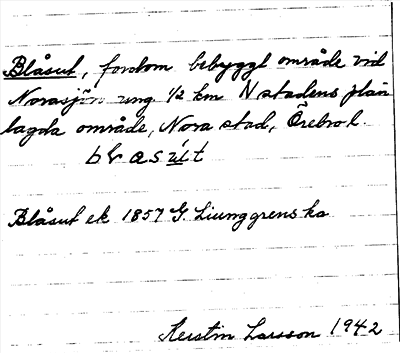 Blåsut, fordom bebyggt område vid
Norasjön ung 1/2 km N stadens plan
lagda område, Nora stad, Örebro l.
Blåsut ek 1857 G. Ljunggrens ka
Kerstin Larsson 1942